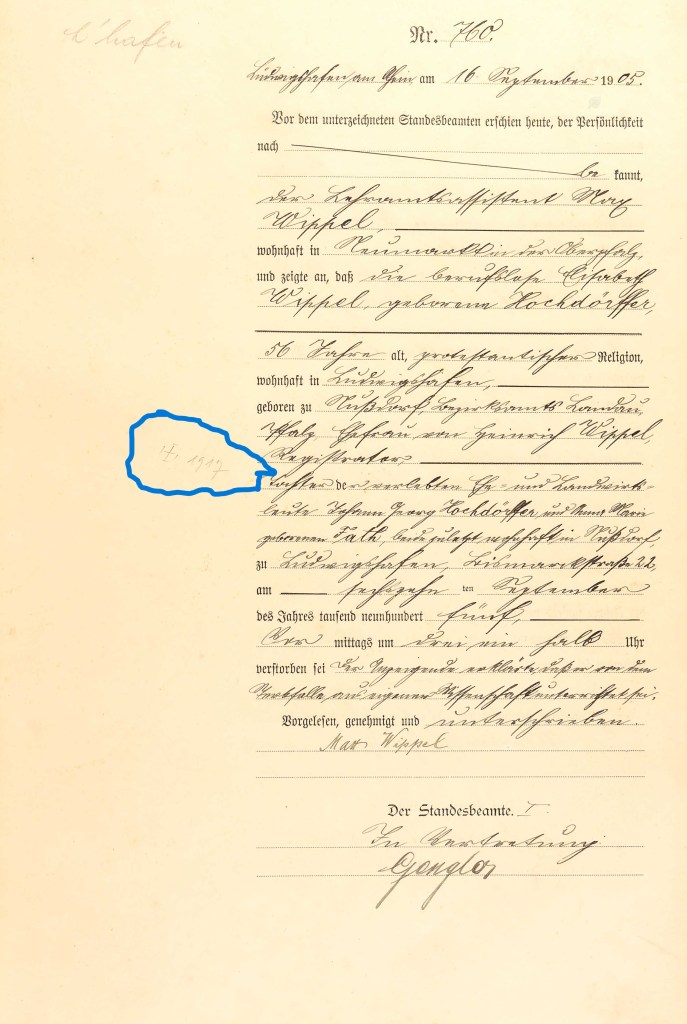 L'hafen
Nr. 760.
Ludwigshafen am Rhein am 16. September 1905.
Vor dem unterzeichneten Standesbeamten erschien heute, der Persönlichkeit
nach
be kannt,
der Lehramtsassistent Max
Wippel,
wohnhaft in Neumarkt in der Oberpfalz,
und zeigte an, daß die berufslose Elisabeth
Wippel, geborene Hochdörffer,
56 Jahre alt, protestantischer Religion,
wohnhaft in Ludwigshafen,
geboren zu Nußdorf, Bezirksamts Landau,
Pfalz Ehefrau von Heinrich Wippel,
Registrator,
1917
Tochter der verlebten Ehe- und Landwirts-
leute Johann Georg Hochdörffer und Anna Maria
geborenen Fath, beide zuletzt wohnhaft in Nußdorf,
zu Ludwigshafen, Bismarckstraße 22,
am sechszehn ten September
des Jahres tausend neunhundert fünf,
Vor mittags um drei ein halb Uhr
verstorben sei Der Anzeigende erklärte, daß er von dem
Sterbfalle aus eigener Wissenschaft unterrichtet sei.
Vorgelesen, genehmigt und unterschrieben.
Max Wippel
Der Standesbeamte. I
In Vertretung